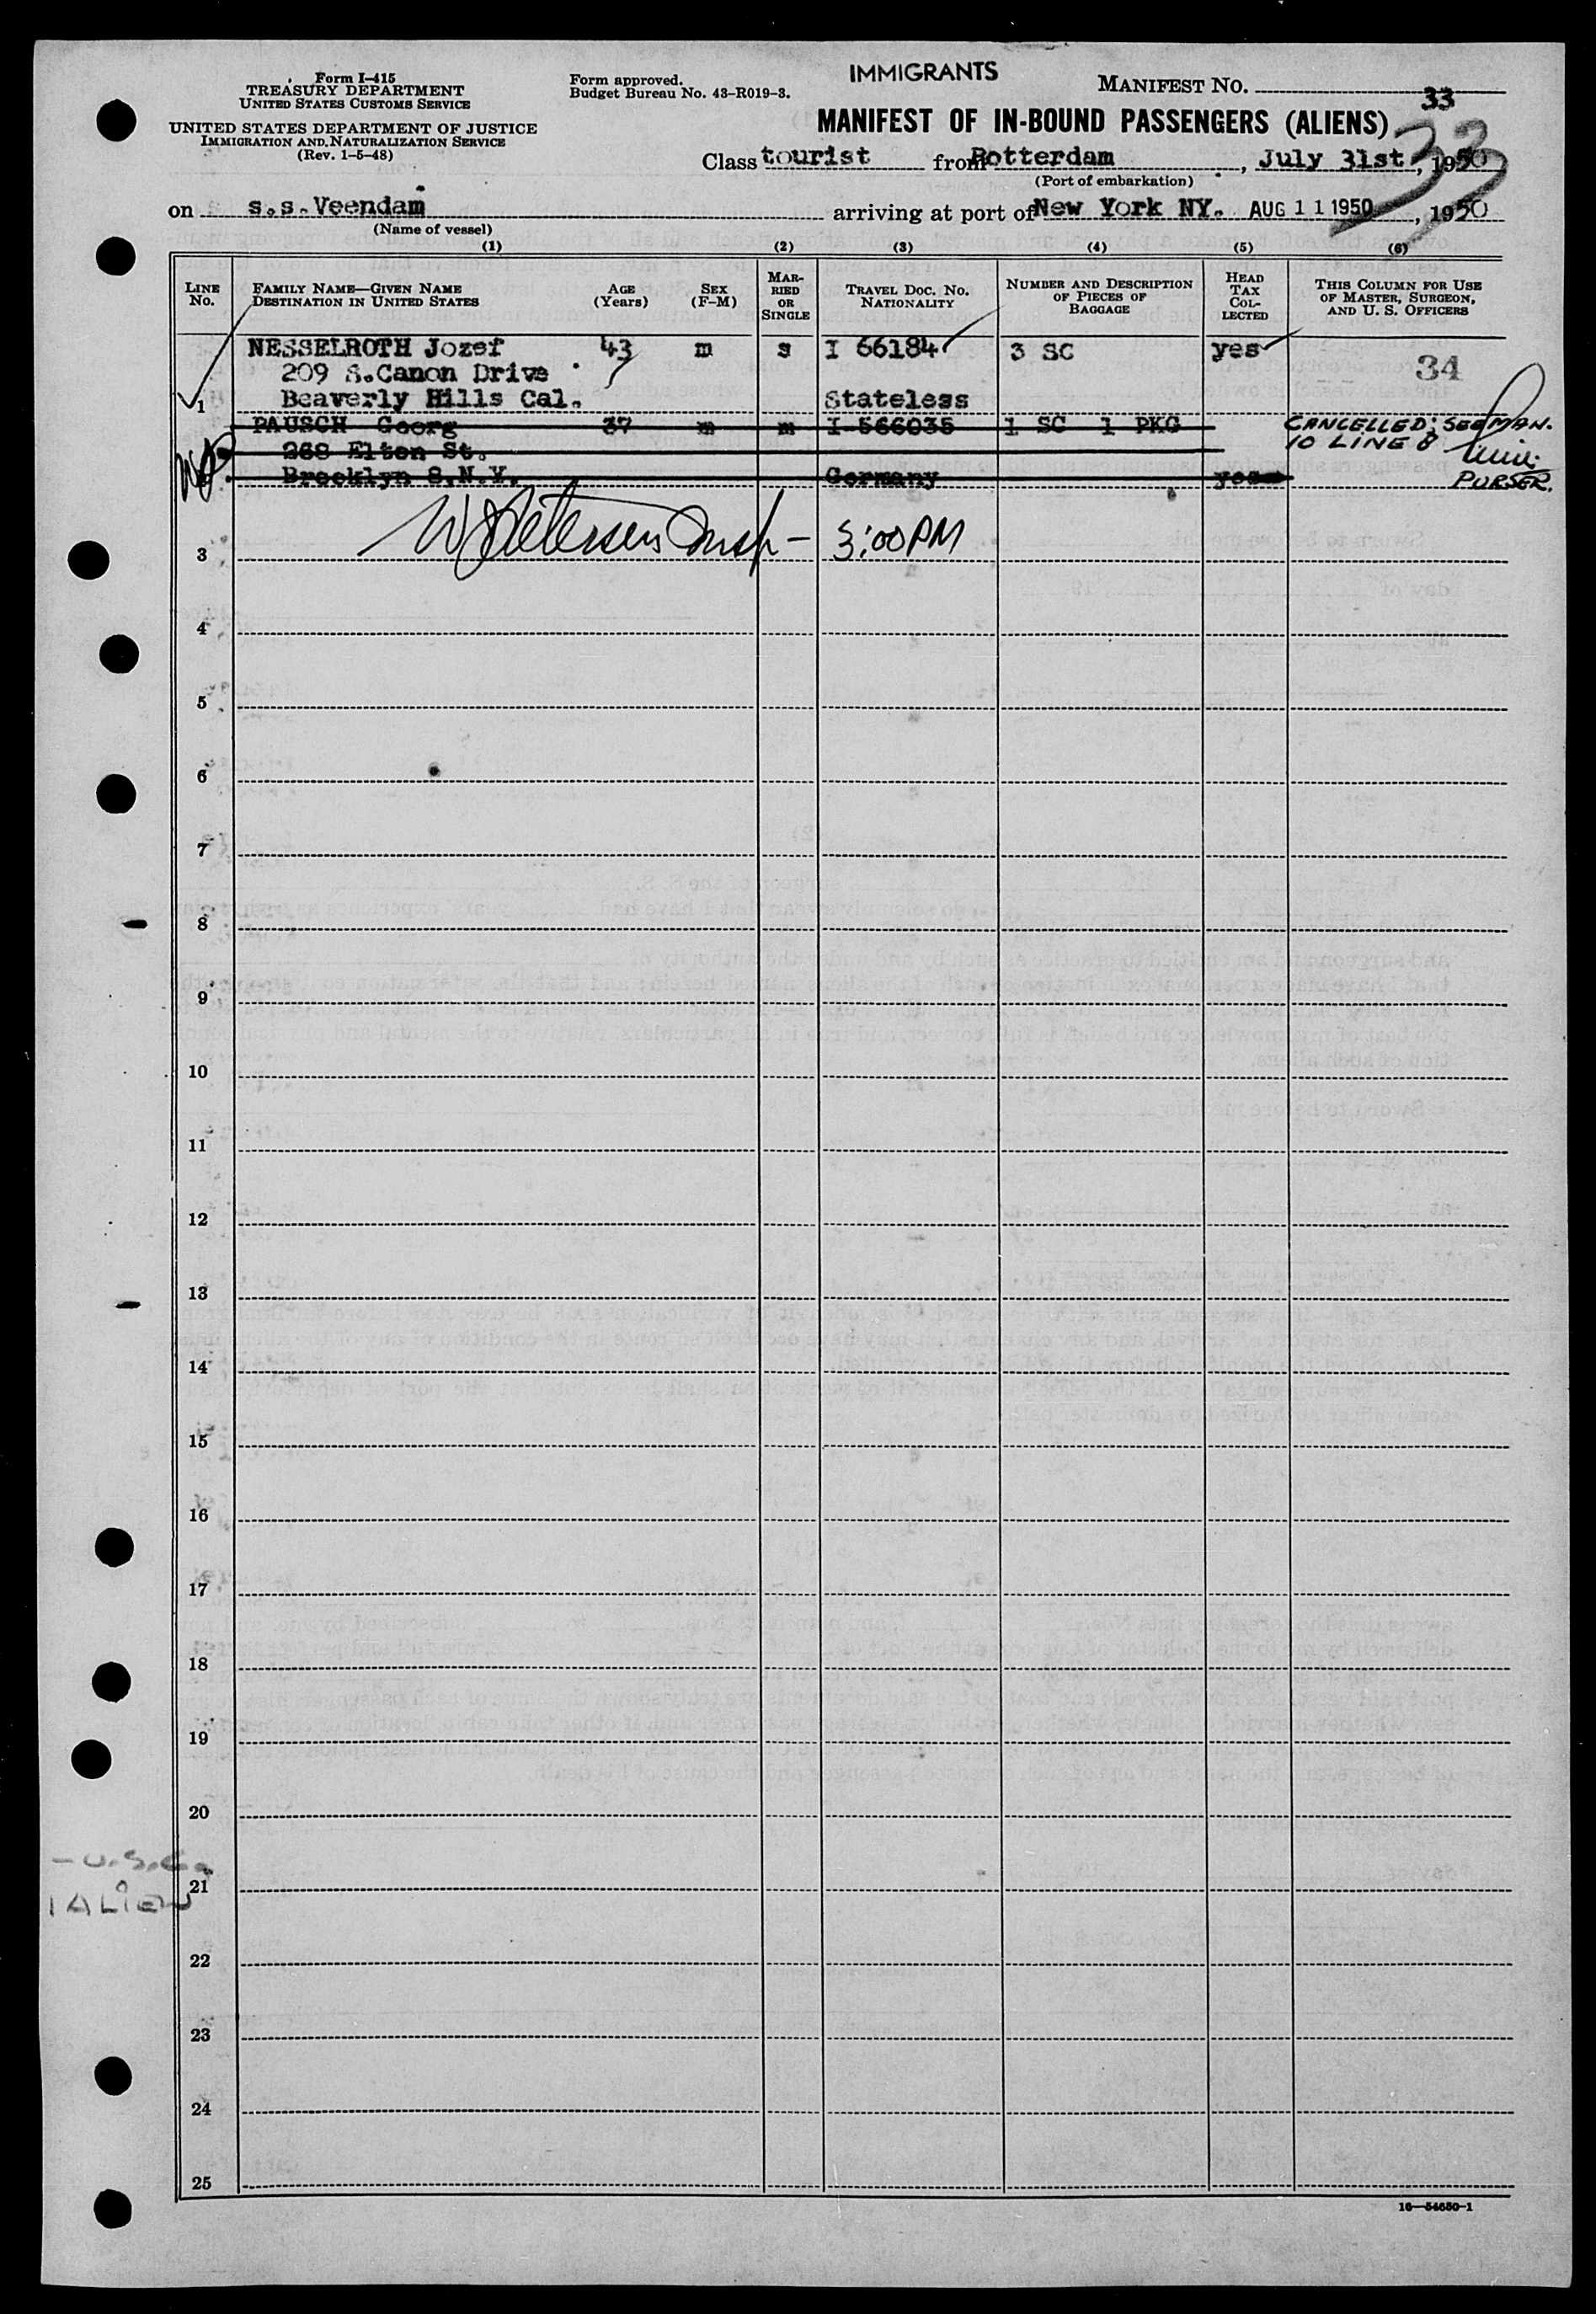 Form I-415
TREASURY DEPARTMENT
UNITED STATES CUSTOMS SERVICE
UNITED STATES DEPARTMENT OF JUSTICE
IMMIGRATION AND NATURALIZATION SERVICE
(Rev. 1-5-48)
Form approved.
Budget Bureau No. 43-R019-3.
IMMIGRANTS
MANIFEST NO. 33
MANIFEST OF IN-BOUND PASSENGERS (ALIENS)
33
Class tourist from Rotterdam, July 31st, 1950
(Port of embarkation)
on s.s.Veendam arriving at port of New York NY. AUG 11 1950, 1950
(Name of vessel)
(1) (2) (3) (4) (5) (6)
LINE No.
FAMILY NAME—GIVEN NAME
DESTINATION IN UNITED STATES
AGE (Years)
SEX (F-M)
MARRIED OR SINGLE
TRAVEL DOC. NO.
NATIONALITY
NUMBER AND DESCRIPTION OF PIECES OF BAGGAGE
HEAD TAX COLLECTED
THIS COLUMN FOR USE OF MASTER, SURGEON, AND U. S. OFFICERS
NESSELROTH Jozef 43 m s I 66184 3 SC yes 34
209 S.Canon Drive
1 Beaverly Hills Cal. Stateless
PAUSCH Georg 37 m m I 566035 1 SC 1 PKG CANCELLED; SEE MAN.
268 Elton St. 10 LINE 8
Brooklyn 8,N.Y. Germany yes PURSER.
3 3:00 PM
4
5
6
7
8
9
10
11
12
13
14
15
16
17
18
19
20
- U.S.C.
21
1 ALIEN
22
23
24
25
16—54650-1